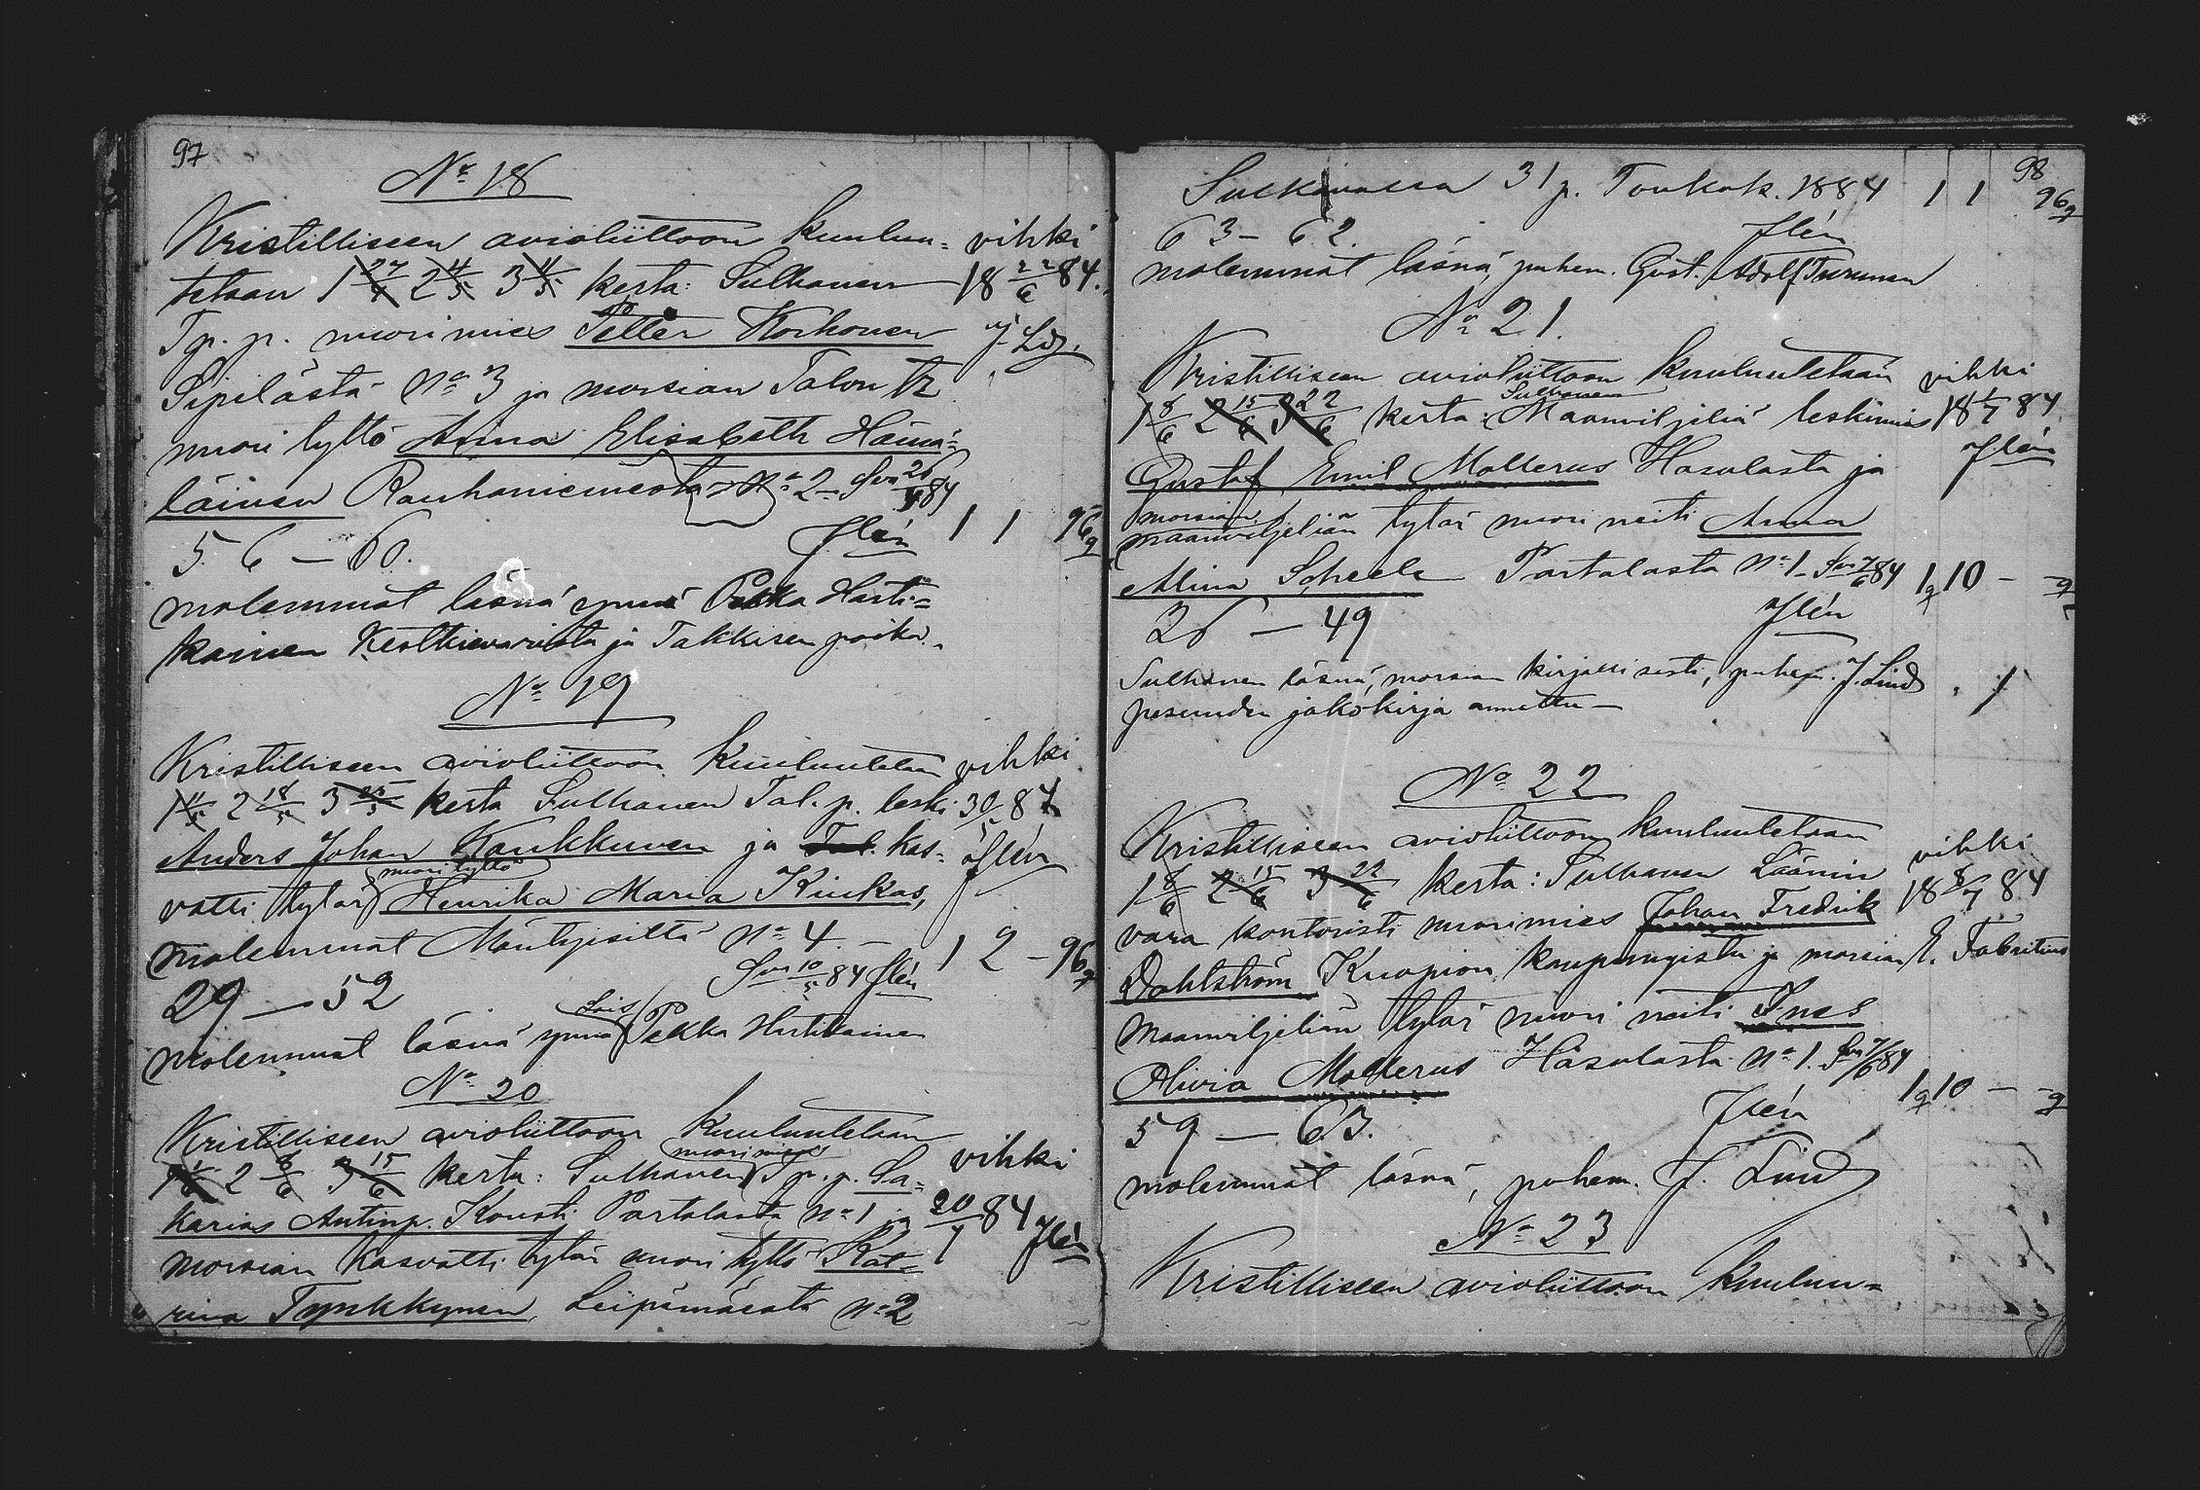 97
No 18
Kristilliseen avioliittoon kuulu= vihki
tetaan 1 27/4 2 4/5 3 11/5 kerta: Sulhanen 18 22/6 84.
Tp. p. nuorimies Petter Korhonen J. Ldg.
Sipilästä No 3 ja morsian Talon tr
nuori tyttö Anna Elisabeth Hämä=
läinen Rauhaniemestä No 2 26/4 84
56 — 60. 1 1 96
molemmat läsnä ynnä Pekka Harti=
kainen Kestkievarista ja Takkisen poika.
No 19
Kristilliseen avioliittoon kuulutetaan vihki
1 11/5 2 18/5 3 25/5 kerta Sulhanen Tal. p. leski 30/5 84
Anders Johan Kaukkunen ja Tal. kas=
vatti tytär nuori tyttö Henrika Maria Kiukas,
molemmat Mäntyisiltä No 4. — 1 2 — 96
29 — 52 10/5 84
molemmat läsnä ynnä Pekka Hartikainen
No 20
Kristilliseen avioliittoon kuulutetaan
1 2 8/6 3 15/6 kerta: Sulhanen nuorimies Tp. p. Sa= vihki
karias Antinp. Kousti Partalasta No 1 ja 20/7 84
morsian kasvatti tytär nuori tyttö Kat=
rina Tynkkynen Leipämäestä No 2
98
Sulkavalla 31 p. Toukok. 1884 1 1 96
63 — 62.
molemmat läsnä, puhem. Gust. Adolf Turunen
No 21.
Kristilliseen avioliittoon kuulutetaan vihki
1 8/6 2 15/6 3 22/6 kerta: Sulhanen Maanviljeliä leskimies 18 1/7 84
Gustaf Emil Mollerus Hasulasta ja
morsian maanviljeliän tytär nuori neiti Anna
Alina Scheele Partalasta No 1 7/6 84 1 10 —
26 — 49
Sulhanen läsnä, morsian kirjallisesti, puhem. J. Lind
pesuuden jakokirja annettu —
No 22
Kristilliseen avioliittoon kuulutetaan
1 8/6 2 15/6 3 22/6 kerta: Sulhanen Läänin vihki
vara kontoristi nuorimies Johan Fredrik 18 8/7 84
Dahlström Kuopion kaupungista ja morsian E. Fabritius
Maanviljeliän tytär nuori neiti Ines
Olivia Mollerus Hasulasta No 1. 7/6 84
59 — 63. 1 10 —
molemmat läsnä, puhem. J. Lind
No 23
Kristilliseen avioliittoon kuulu=